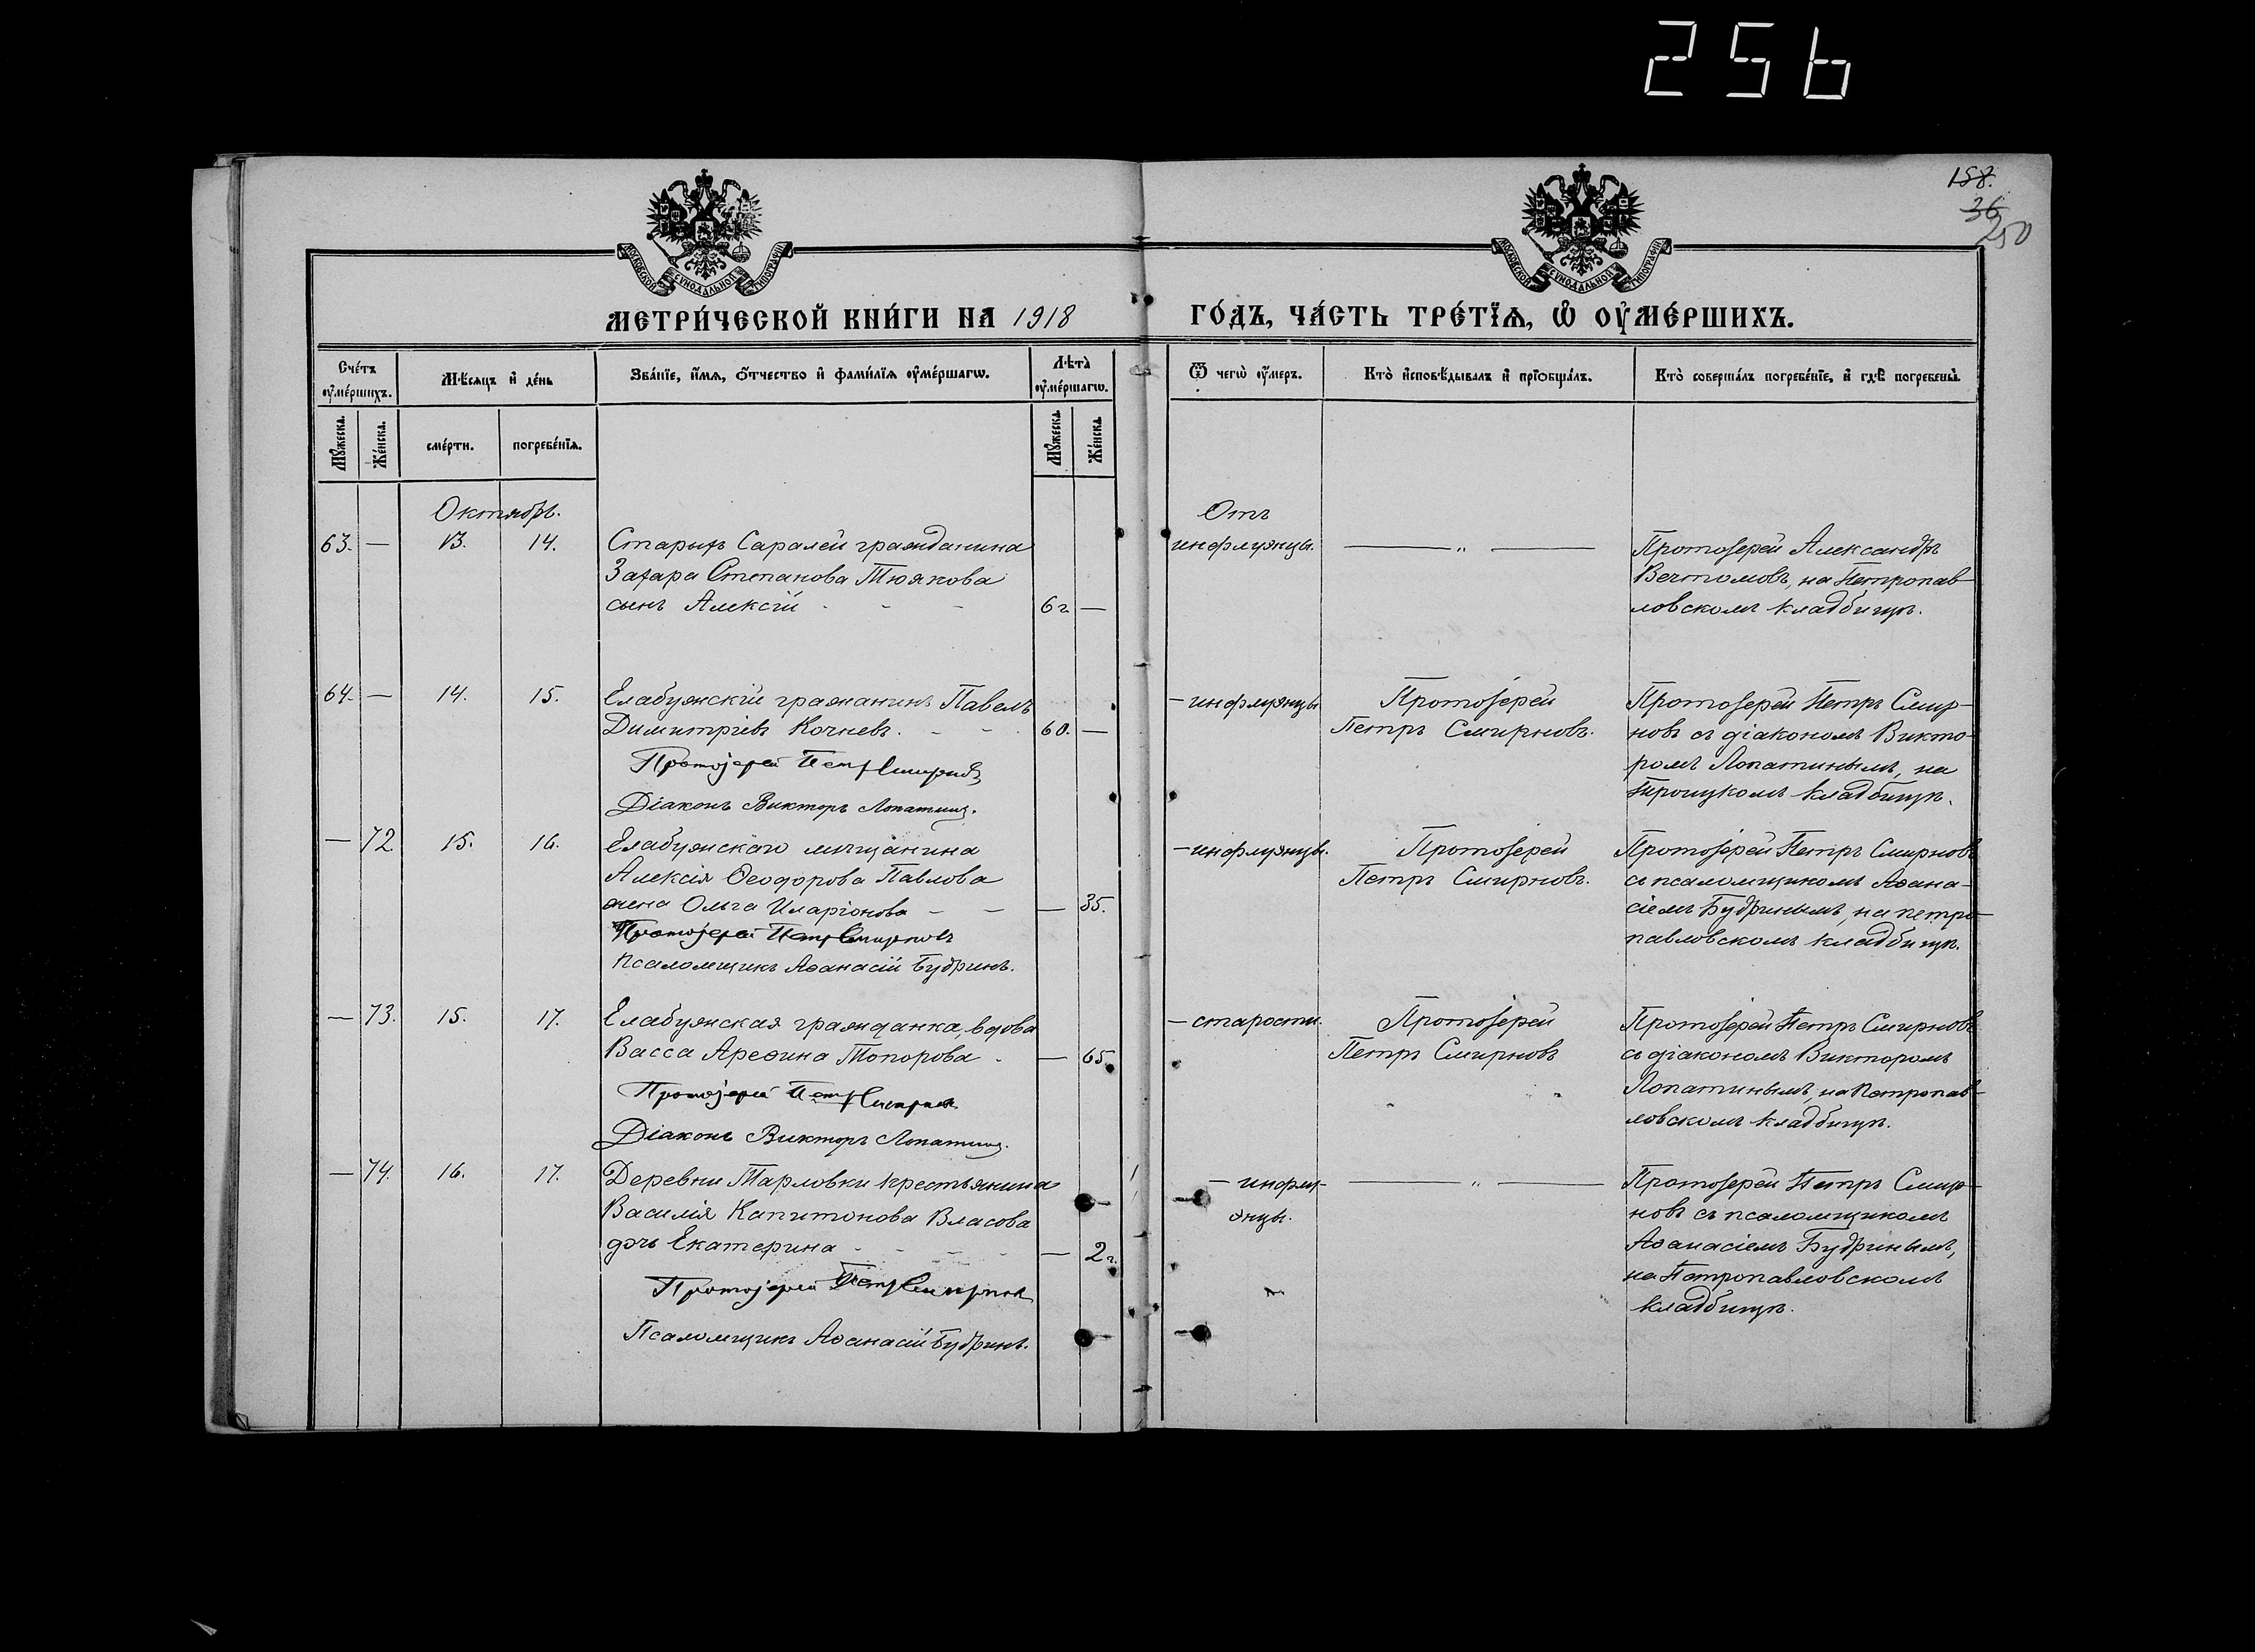 256
158.
36
250
МОСКОВСКОЙ СѴНОДАЛЬНОЙ ТИПОГРАФІИ
МОСКОВСКОЙ СѴНОДАЛЬНОЙ ТИПОГРАФІИ
МЕТРИ́ЧЕСКОЙ КНИ́ГИ НА 1918 ГО́ДЪ, ЧА́СТЬ ТРЕ́ТЇѦ, Ѡ҆ ОУ҆МЕ́РШИХЪ.
Сче́тъ оу҆ме́ршихъ.
Мѣ́сяцъ и҆ де́нь
Зва́нїе, и҆́мѧ, ѻ҆́тчество и҆ фами́лїѧ оу҆ме́ршагѡ.
Лѣ́та оу҆ме́ршагѡ.
Ѿ чегѡ̀ оу҆́меръ.
Кто̀ и҆сповѣ́дывалъ и҆ прїѡбща́лъ.
Кто̀ соверша́лъ погребе́нїе, и҆ гдѣ̀ погребены̀.
Мꙋ́жеска.
Же́нска.
сме́рти.
погребе́нїѧ.
Мꙋ́жеска.
Же́нска.
Октябрь.
Отъ
63. — 13. 14. Старыхъ Саралей гражданина
Захара Степанова Тюякова
сынъ Алексій - - - 6 г. —
инфлуэнцы.
— „ —
Протоіерей Александръ
Вечтомовъ, на Петропав-
ловскомъ кладбищѣ.
64. — 14. 15. Елабужскій гражанинъ Павелъ
Димитріевъ Кочневъ. - - 60. —
Протоіерей Петръ Смирновъ
Діаконъ Викторъ Лопатинъ.
— инфлуэнцы
Протоіерей
Петръ Смирновъ.
Протоіерей Петръ Смир-
новъ съ діакономъ Викто-
ромъ Лопатинымъ, на
Троицкомъ кладбищѣ.
— 72 15. 16. Елабужскаго мѣщанина
Алексія Ѳеодорова Павлова
жена Ольга Иларіонова - - — 35.
Протоіерей Петръ Смирновъ
Псаломщикъ Аѳанасій Будринъ.
— инфлуэнцы.
Протоіерей
Петръ Смирновъ.
Протоіерей Петръ Смирновъ
съ псаломщикомъ Аѳана-
сіемъ Будринымъ, на петро-
павловскомъ кладбищѣ.
— 73. 15. 17. Елабужская гражданка, вдова
Васса Ареѳина Топорова - — 65.
Протоіерей Петръ Смирновъ
Діаконъ Викторъ Лопатинъ.
— старости.
Протоіерей
Петръ Смирновъ
Протоіерей Петръ Смирновъ
съ діакономъ Викторомъ
Лопатинымъ, на Петропав-
ловскомъ кладбищѣ.
— 74. 16. 17. Деревни Тарловки крестьянина
Василія Капитонова Власова
дочь Екатерина - - - — 2 г.
Протоіерей Петръ Смирновъ
Псаломщикъ Аѳанасій Будринъ.
— инфлу-
энцы.
— „ —
Протоіерей Петръ Смир-
новъ съ псаломщикомъ
Аѳанасіемъ Будринымъ,
на Петропавловскомъ
кладбищѣ.